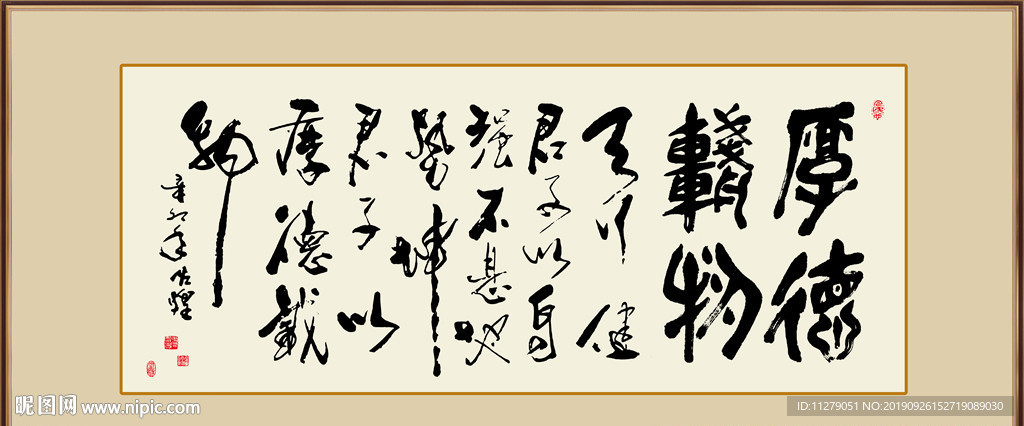 厚德
載物
天行健
君子以自
强不息地
勢坤
君子以
厚德載
物
辛卯年
昵图网 www.nipic.com
ID:11279051 NO:20190926152719089030